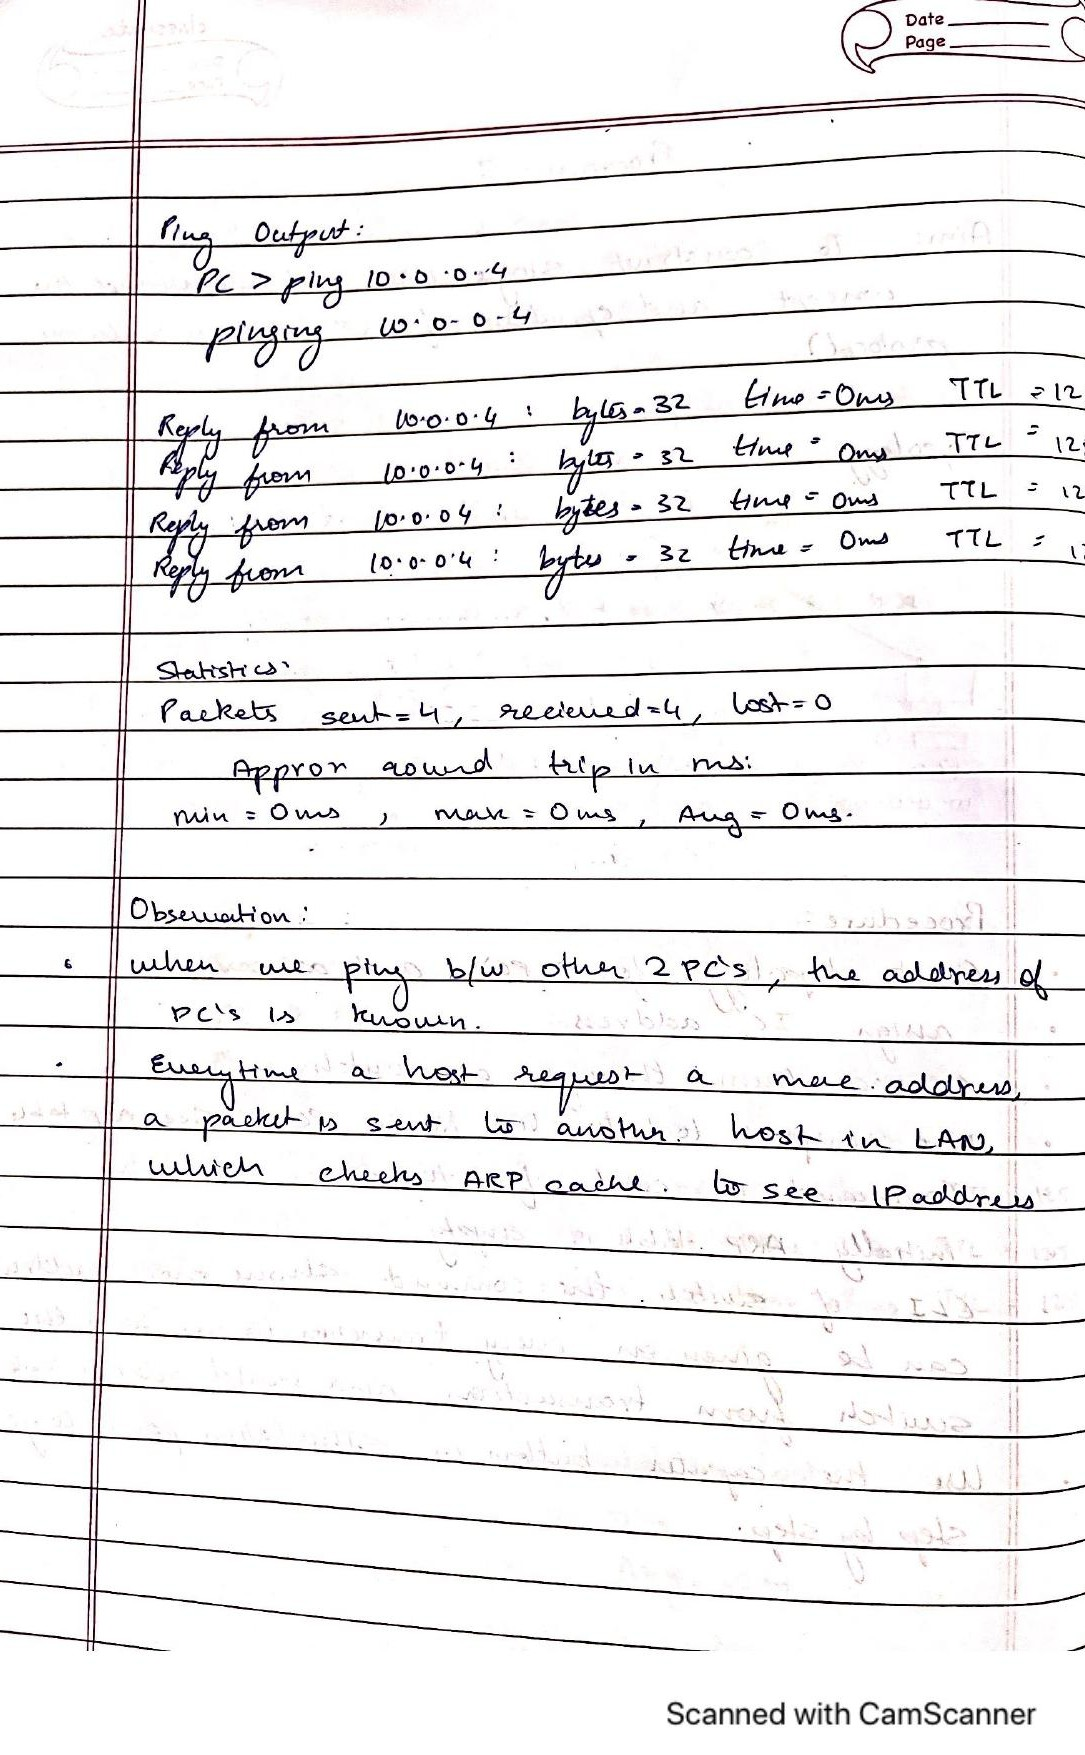 Date
Page
Ping Output:
PC > ping 10.0.0.4
pinging 10.0.0.4
Reply from 10.0.0.4 : bytes = 32 time = 0ms TTL = 12
Reply from 10.0.0.4 : bytes = 32 time = 0ms TTL = 12
Reply from 10.0.04 : bytes = 32 time = 0ms TTL = 12
Reply from 10.0.0.4 : bytes = 32 time = 0ms TTL = 1
Statistics:
Packets sent = 4, recieved = 4, lost = 0
Approx round trip in ms:
min = 0ms , max = 0ms , Avg = 0ms.
Observation :
when we ping b/w other 2 PC's, the address of
PC's is known.
Everytime a host request a mac address,
a packet is sent to another host in LAN,
which checks ARP cache. to see IP address
Scanned with CamScanner